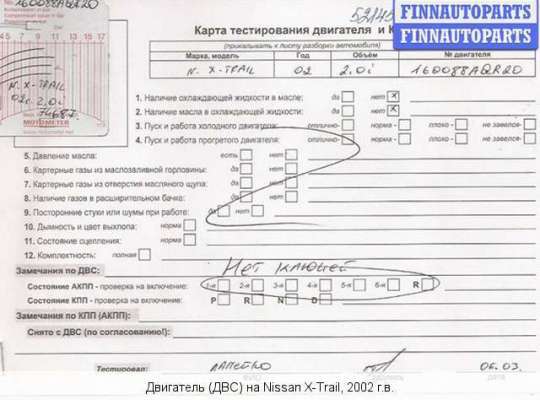 160088AQR20
N. X-TRAIL
02г. 2.0i
74687
MOTOMETER
FINNAUTOPARTS
FINNAUTOPARTS
Карта тестирования двигателя и К
(прикалывать к листу разборки автомобиля)
Марка, модель Год Объём № двигателя
N. X-TRAIL 02 2.0i 160088AQR20
1. Наличие охлаждающей жидкости в масле: да нет x
2. Наличие масла в охлаждающей жидкости: да нет x
3. Пуск и работа холодного двигателя: отлично- норма - плохо - не завелся-
4. Пуск и работа прогретого двигателя: отлично- норма - плохо - не завелся-
5. Давление масла: есть нет
6. Картерные газы из маслозаливной горловины: да нет
7. Картерные газы из отверстия масляного щупа: да нет
8. Наличие газов в расширительном бачке: да нет
9. Посторонние стуки или шумы при работе: да нет
10. Дымность и цвет выхлопа: норма
11. Состояние сцепления: норма
12. Комплектность: полная
Замечания по ДВС: Нет ключей
Состояние АКПП - проверка на включение: 1-я 2-я 3-я 4-я 5-я 6-я R
Состояние КПП - проверка на включение: P R N D
Замечания по КПП (АКПП):
Снято с ДВС (по согласованию!):
Тестировал: 06.03.
дата
Двигатель (ДВС) на Nissan X-Trail, 2002 г.в.